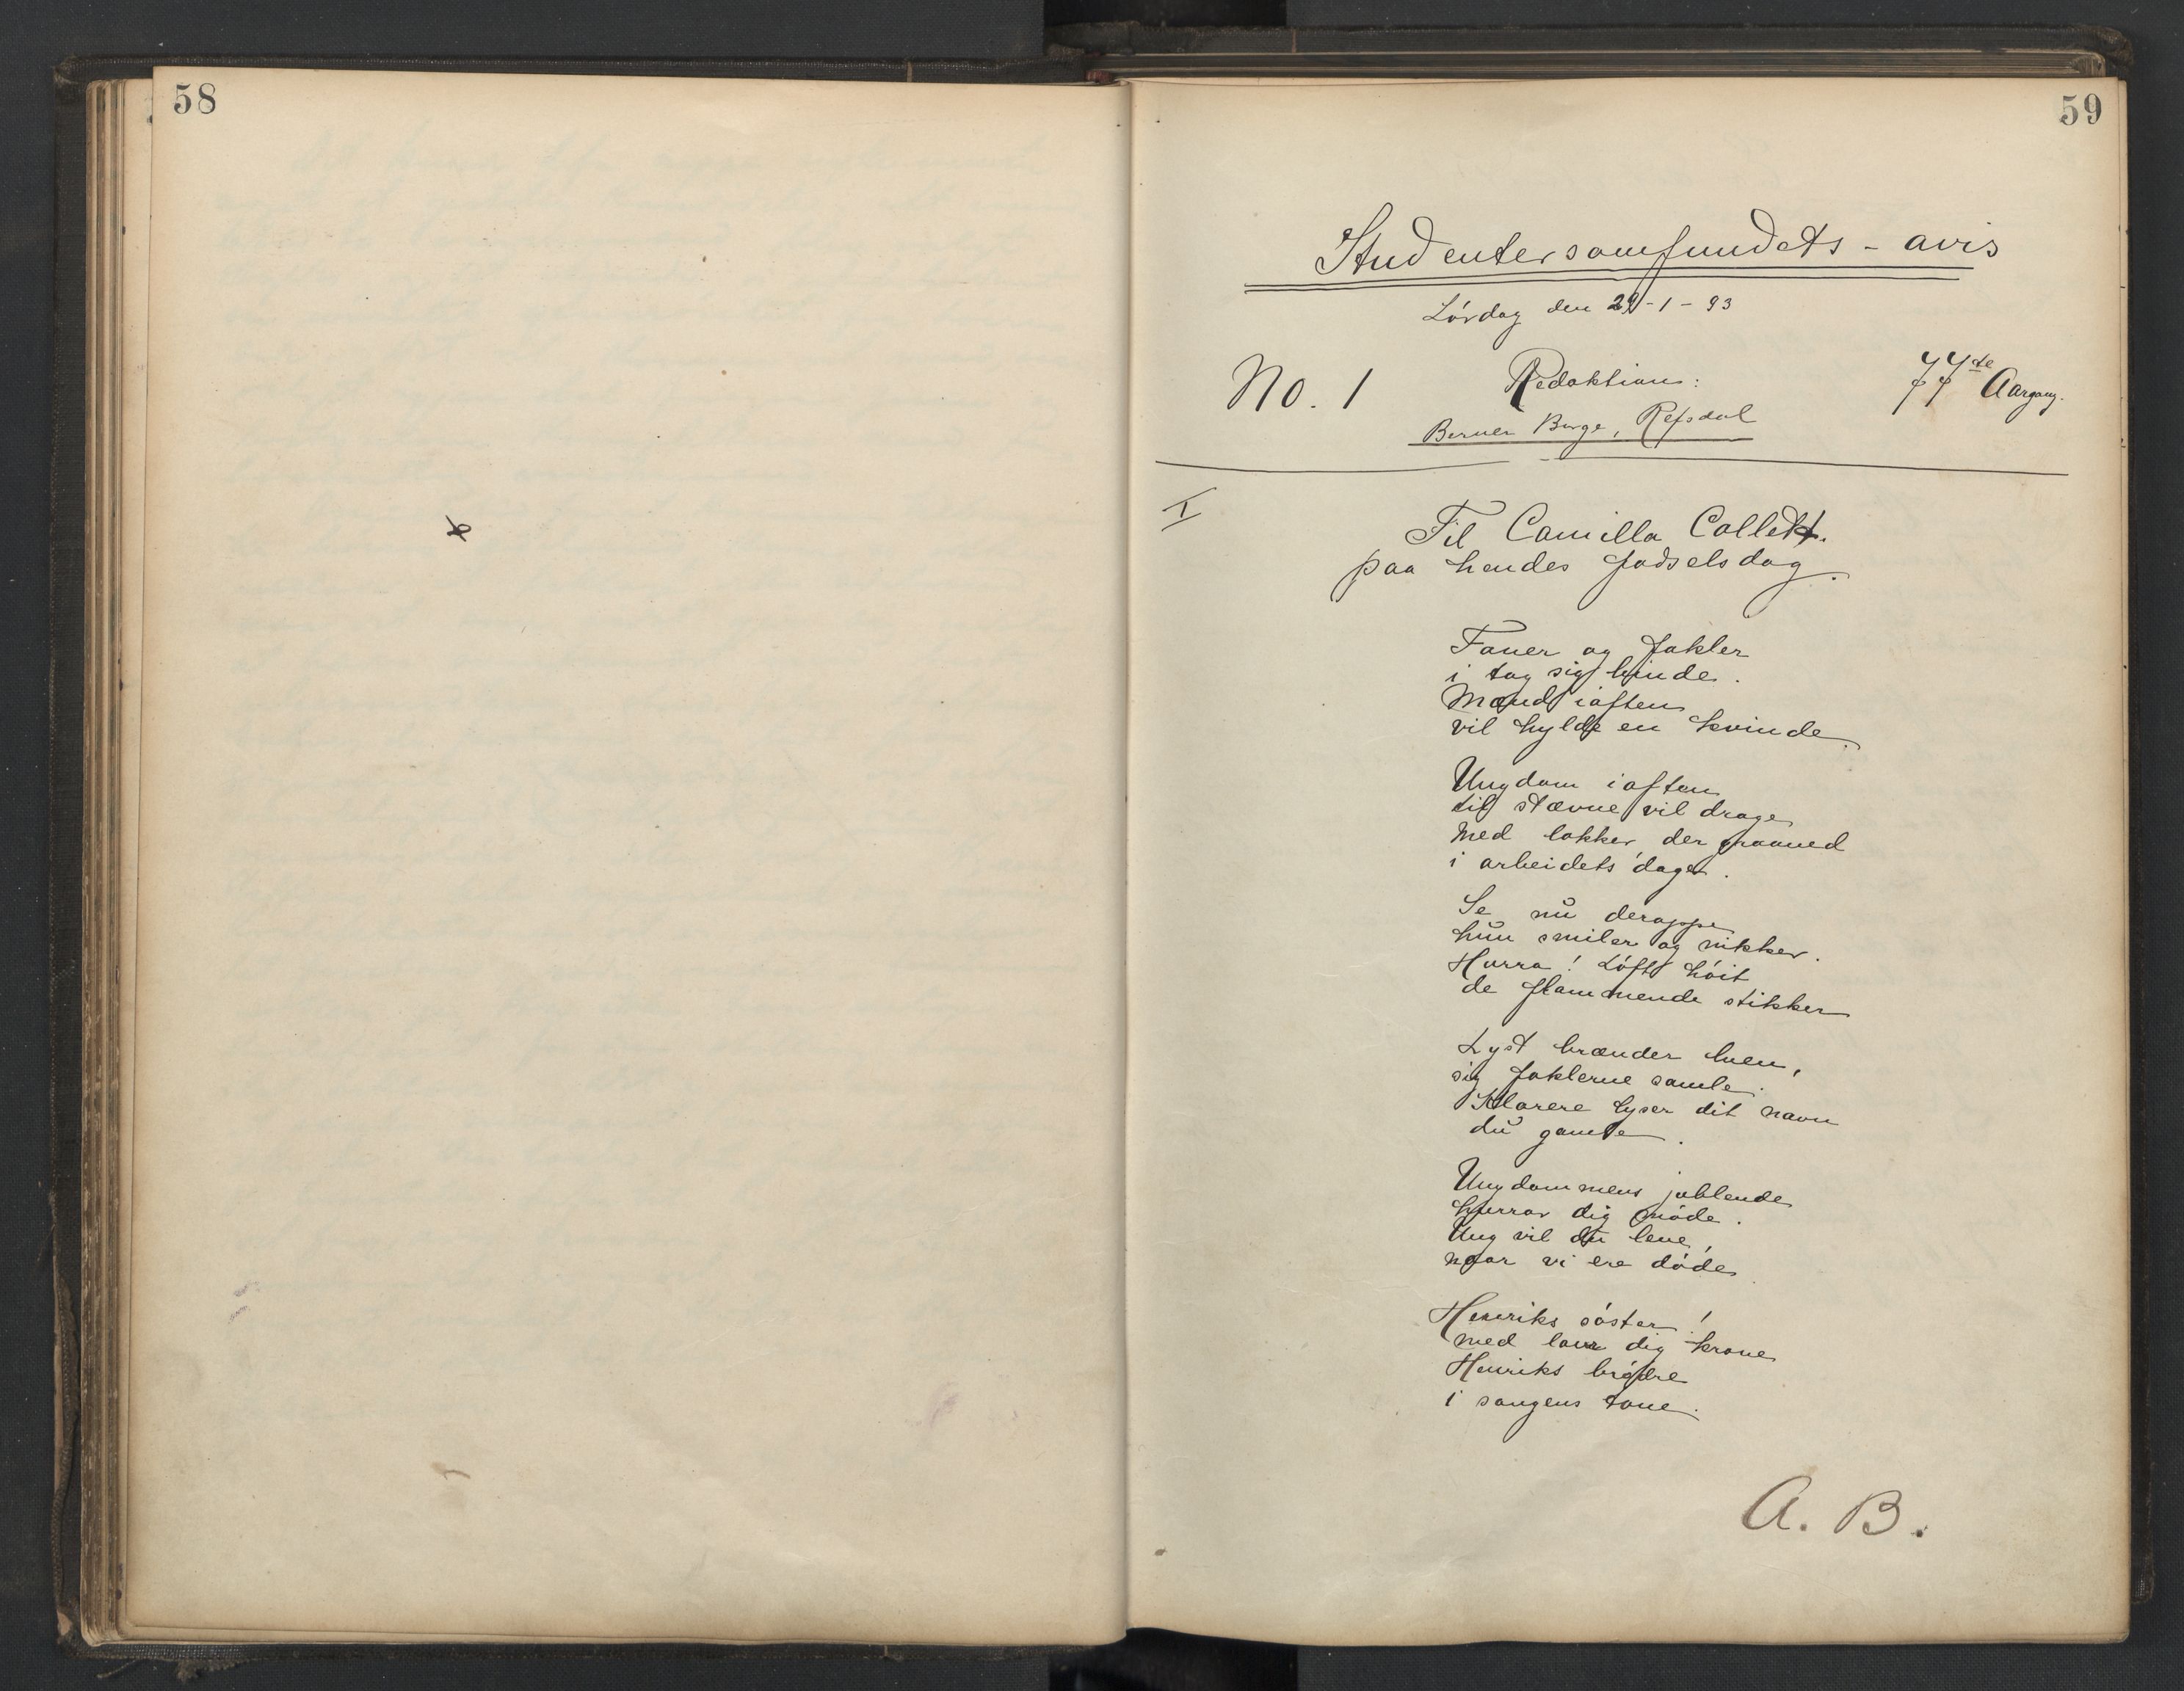 58
59
Studentersamfundets-avis
Lórdag den 29-1-93
No. 1
Redaktion:
77de Aargang.
Berner Borge, Refsdal
I
Til Camilla Collett.
paa hendes fødselsdag.
Faner og fakler
i tog sig binde.
Mænd iaften
vil hylde en kvinde.
Ungdom iaften
til stævne vil drage
Med lokker, der graaned
i arbeidets dage.
Se nu deroppe
hun smiler og nikker.
Hurra! Lóft hóit
de flammende stikker
Lyst brænder luen,
sig faklerne samle.
Klarere lyser dit navn
du gamle.
Ungdommens jublende
hurrar dig móde.
Ung vil du leve,
naar vi ere dóde
Henriks sóster!
med laur dig krone
Henriks bródre
i sangens tone.
A. B.